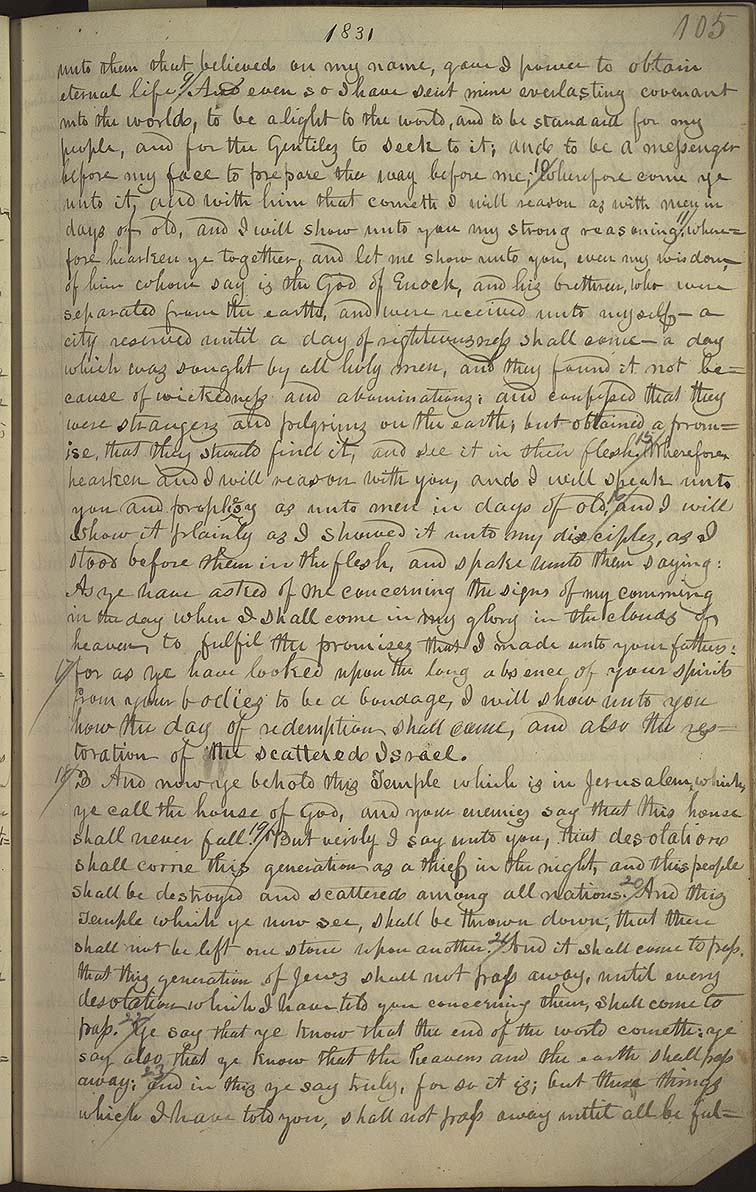 1831
105
unto them that believed on my name, gave I power to obtain
eternal life. 9/ And even so I have sent mine everlasting covenant
into the world, to be a light to the world, and to be standard for my
people, and for the Gentiles to seek to it; and to be a messenger
before my face to prepare the way before me; 10/ Wherefore come ye
unto it, and with him that cometh I will reason as with men in
days of old, and I will show unto you my strong reasoning; 11/ where=
fore hearken ye together, and let me show unto you, even my wisdom,
of him whom say is the God of Enock, and his brethren, who were
separated from the earth, and were received unto myself— a
city reserved until a day of righteousness shall come— a day
which was sought by all holy men, and they found it not be=
cause of wickedness and abominations; and confessed that they
were strangers and pilgrims on the earth; but obtained a prom=
ise, that they should find it, and see it in their flesh. 15/ Wherefore,
hearken and I will reason with you, and I will speak unto
you and prophesy as unto men in days of old; 16/ and I will
show it plainly as I showed it unto my disciples, as I
stood before them in the flesh, and spake unto them saying:
As ye have asked of me concerning the signs of my comming
in the day when I shall come in my glory in the clouds of
heaven, to fulfil the promises that I made unto your fathers:
17/ for as ye have looked upon the long absence of your spirits
from your bodies to be a bondage, I will show unto you
how the day of redemption shall come, and also the res=
toration of the scattered Israel.
18/ 3 And now ye behold this Temple which is in Jerusalem, which
ye call the house of God, and your enemies say that this house
shall never fall. 19/ But verily I say unto you, that desolation
shall come this generation as a thief in the night, and this people
shall be destroyed and scattered among all nations. 20/ And this
Temple which ye now see, shall be thrown down, that there
shall not be left one stone upon another. 21/ And it shall come to pass,
that this generation of Jews shall not pass away, until every
desolation which I have told you concerning them, shall come to
pass. 22/ Ye say that ye know that the end of the world cometh: ye
say also, that ye know that the heavens and the earth shall pass
away; 23/ and in this ye say truly, for so it is; but these things
which I have told you, shall not pass away until all be ful=